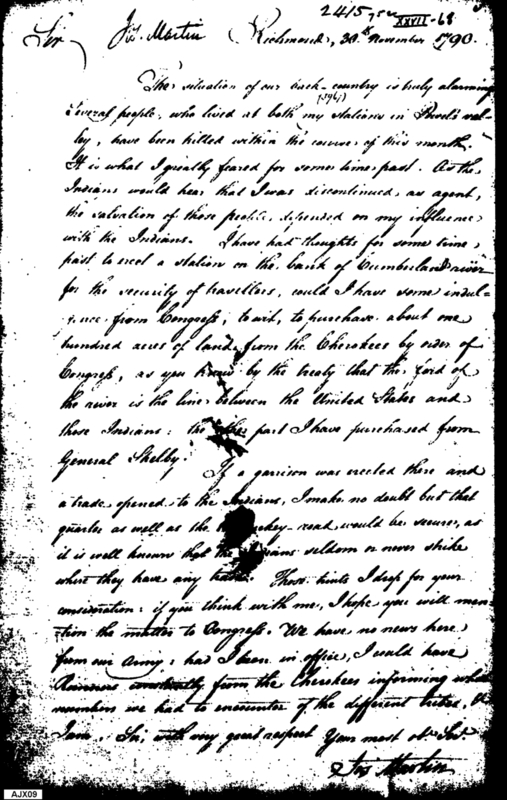 2415 7522 XXVII-68
Sir Jos. Martin Richmond, 30th November 1790.
The situation of our back-country is truly alarming
Several people, who lived at both my stations in Powel's val-
ley, have been killed within the course of this month.
It is what I greatly feared for some time past. As the
Indians would hear that I was discontinued, as agent,
the salvation of those people, depended on my influence
with the Indians. I have had thoughts for some time
past to erect a station on the bank of Cumberland river
for the security of travellers, could I have some indul-
gence from Congress, to wit, to purchase about one
hundred acres of land from the Cherokees by order of
Congress, as you know by the treaty that the ford of
the river is the line between the United States and
those Indians: the other part I have purchased from
General Shelby. If a garrison was erected there and
a trade opened to the Indians, I make no doubt but that
quarter as well as the road would be secure, as
it is well known that the Indians seldom or never strike
where they have any trade. These hints I drop for your
consideration: if you think with me, I hope you will men-
tion the matter to Congress. We have no news here
from our Army; had I been in office, I would have
Runners constantly from the Cherokees informing what
numbers we had to encounter of the different tribes, &c
I am, Sir, with very great respect Your most obt. Servt.
Jos Martin
AJX09